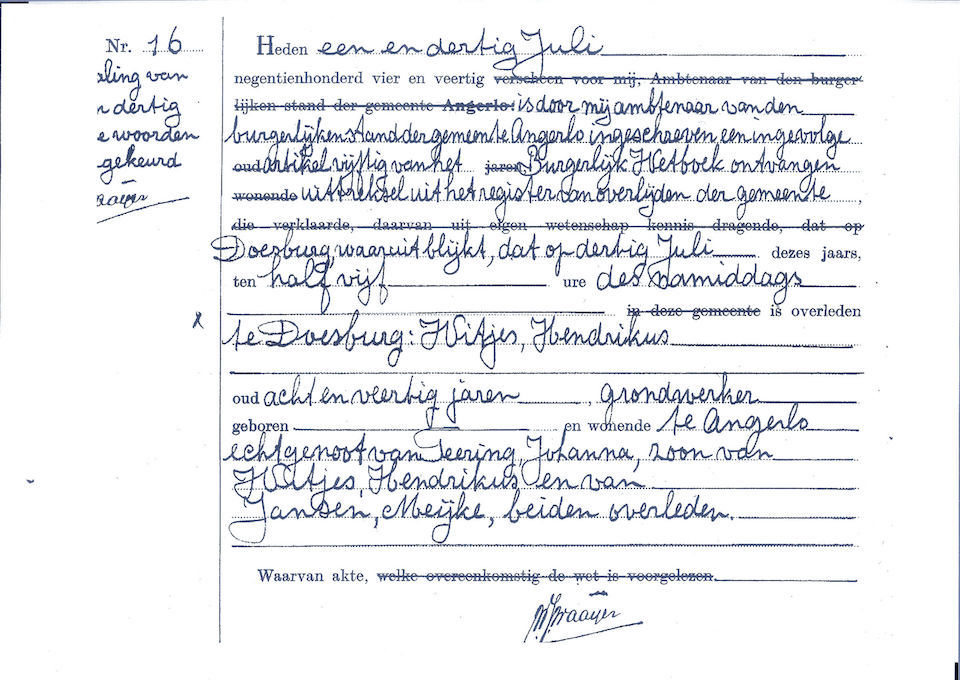 Nr. 16
ling van
dertig
e woorden
gekeurd
Heden een en dertig Juli
negentienhonderd vier en veertig verscheen voor mij, Ambtenaar van den burger-
lijken stand der gemeente Angerlo: is door mij ambtenaar van den
burgerlijken stand der gemeente Angerlo ingeschreven een ingevolge
oud artikel vijftig van het jaren, Burgerlijk Wetboek ontvangen
wonende uittreksel uit het register van overlijden der gemeente ,
die verklaarde, daarvan uit eigen wetenschap kennis dragende, dat op
Doesburg, waaruit blijkt, dat op dertig Juli dezes jaars,
ten half vijf ure des namiddags
in deze gemeente is overleden
te Doesburg: Witjes, Hendrikus
oud acht en veertig jaren , grondwerker
geboren en wonende te Angerlo
echtgenoot van Teering, Johanna, zoon van
Witjes, Hendrikus en van
Jansen, Meijke, beiden overleden.
Waarvan akte, welke overeenkomstig de wet is voorgelezen.